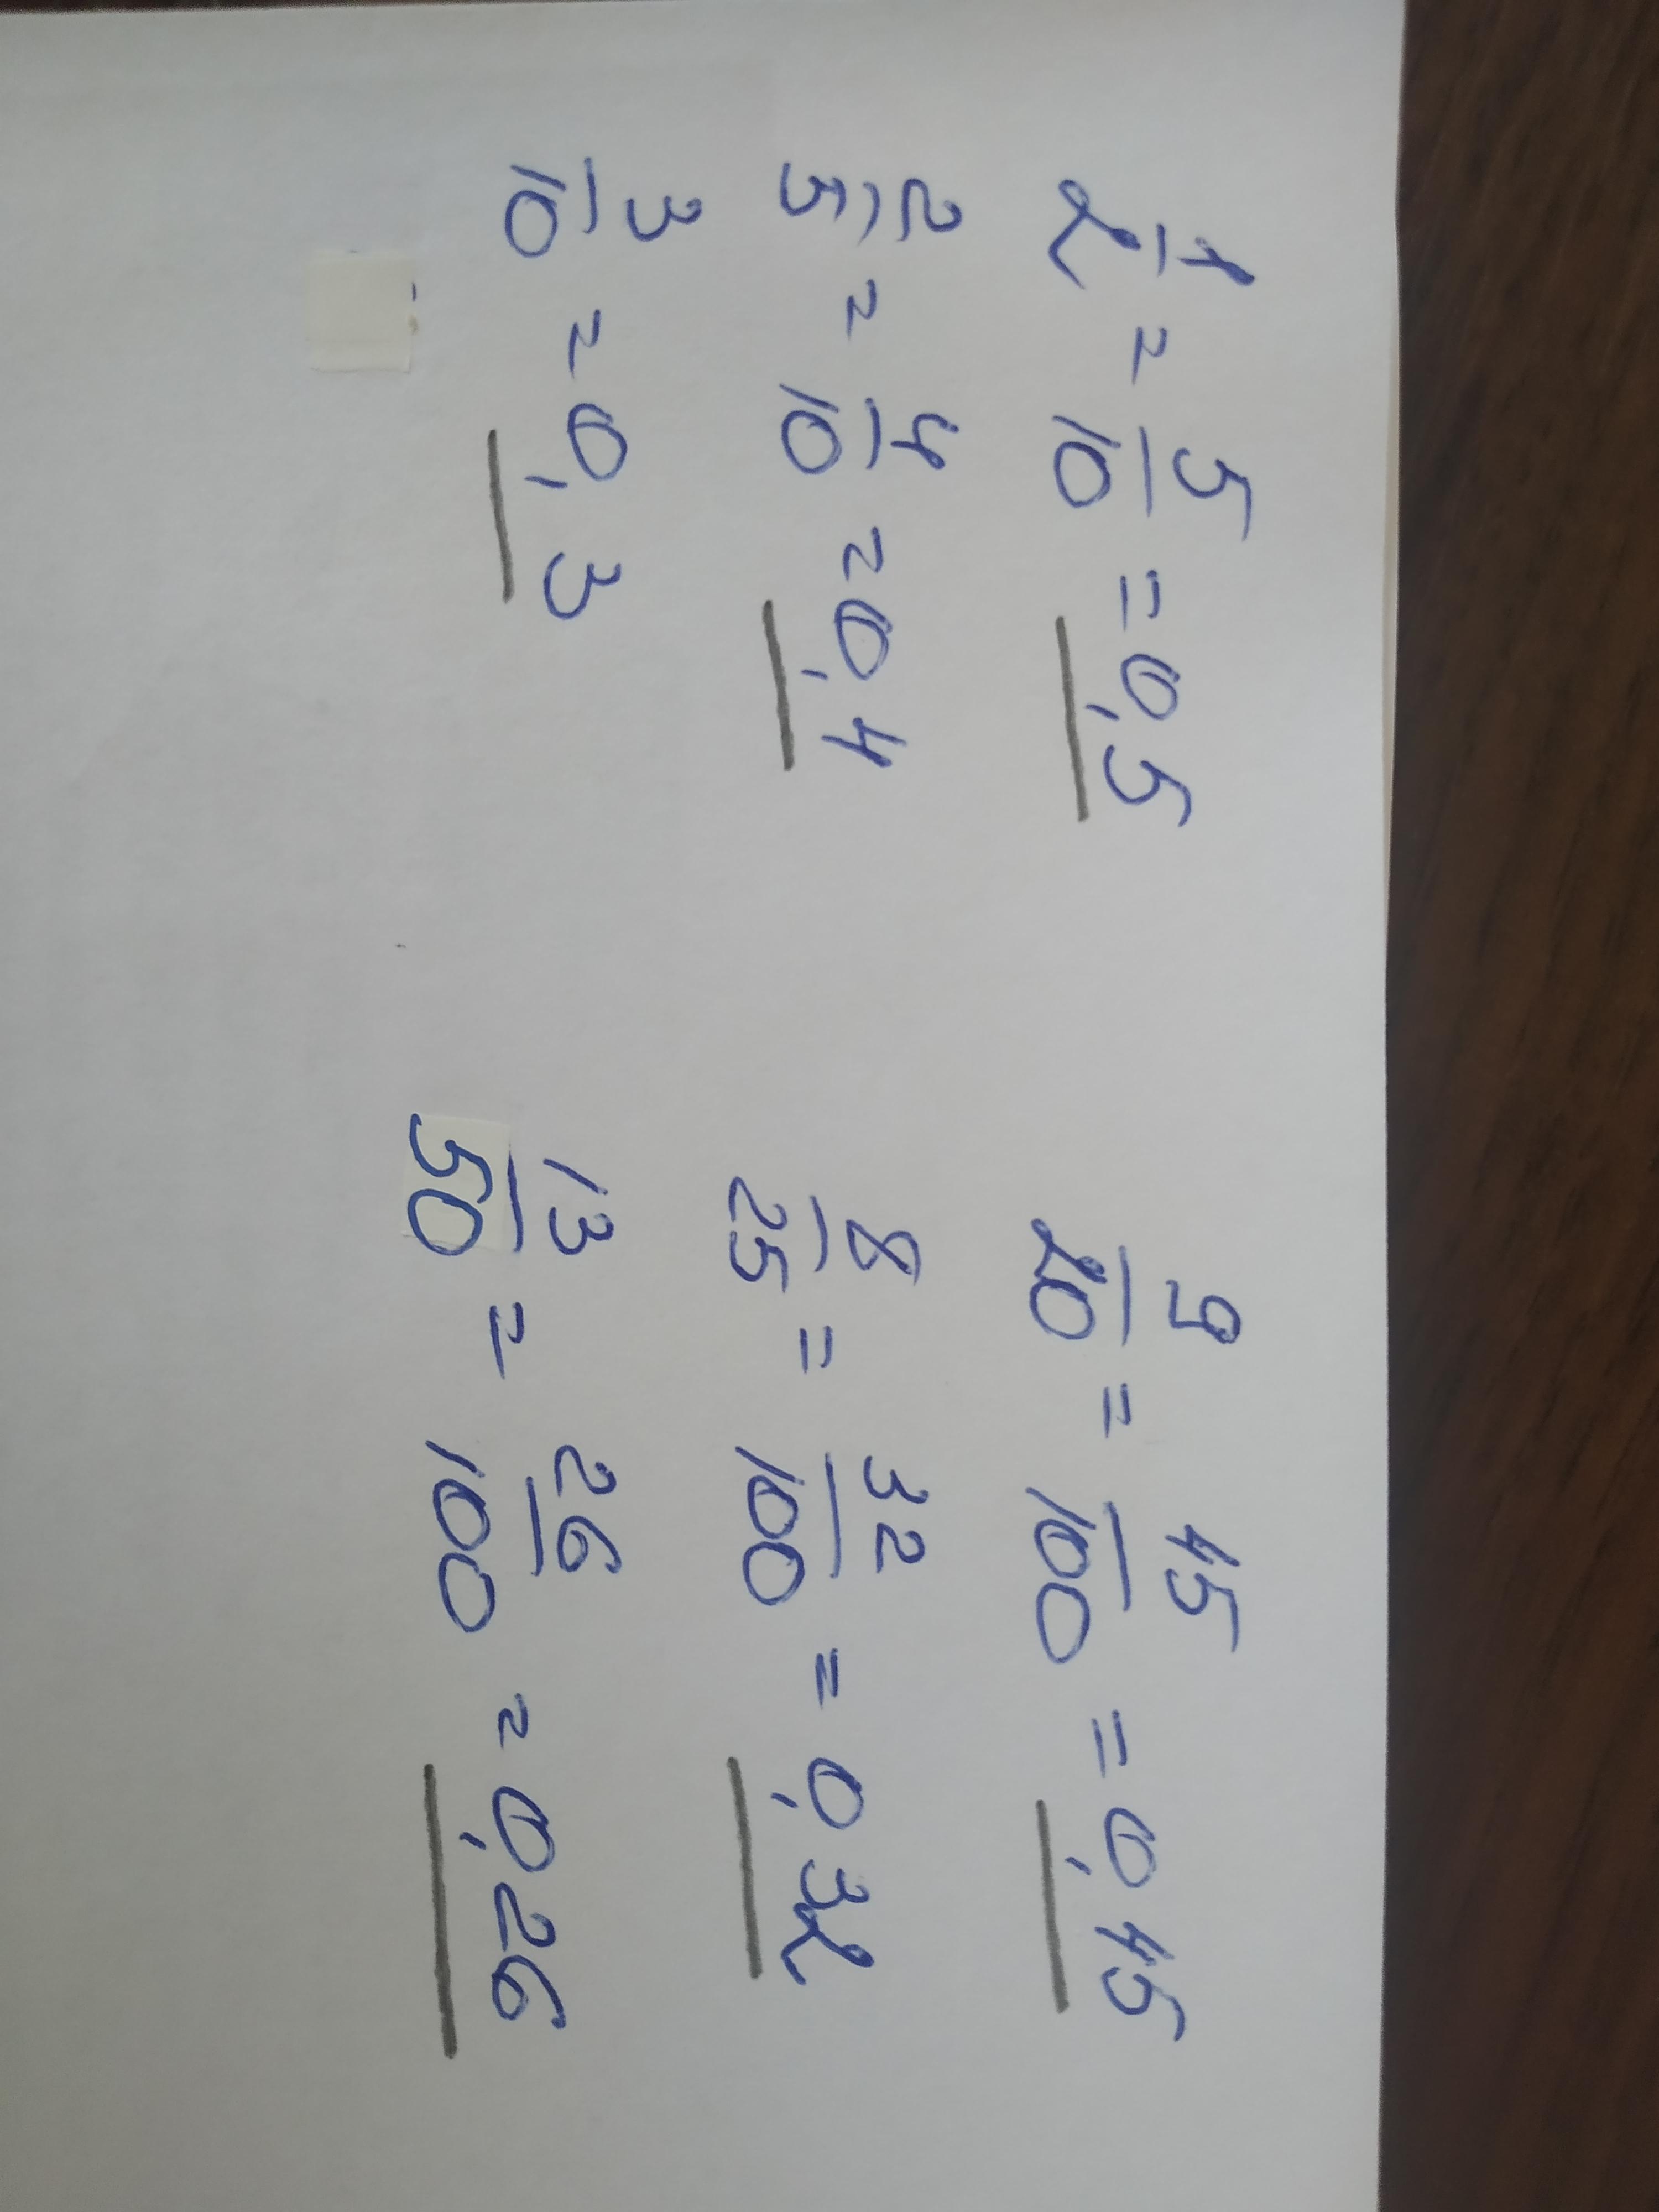 1/2 = 5/10 = 0,5
2/5 = 4/10 = 0,4
3/10 = 0,3
9/20 = 45/100 = 0,45
8/25 = 32/100 = 0,32
13/50 = 26/100 = 0,26